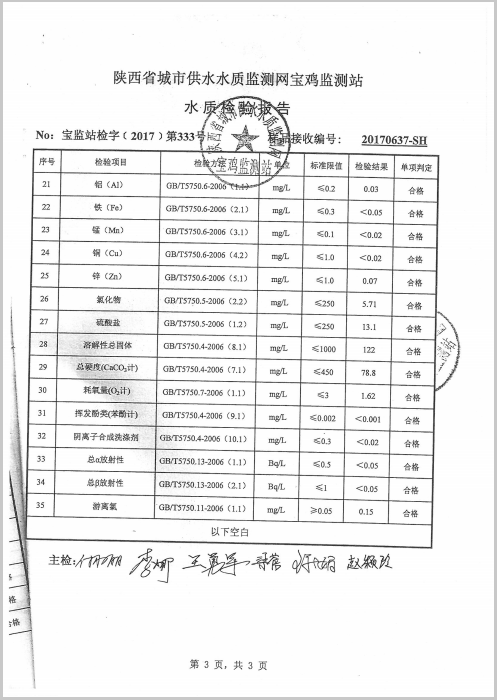 陕西省城市供水水质监测网宝鸡监测站
水质检验报告
No：宝监站检字﹝2017﹞第333号 样品接收编号： 20170637-SH
序号 检验项目 检验方法 单位 标准限值 检验结果 单项判定
21 铝（Al） GB/T5750.6-2006（1.1） mg/L ≤0.2 0.03 合格
22 铁（Fe） GB/T5750.6-2006（2.1） mg/L ≤0.3 <0.05 合格
23 锰（Mn） GB/T5750.6-2006（3.1） mg/L ≤0.1 <0.02 合格
24 铜（Cu） GB/T5750.6-2006（4.2） mg/L ≤1.0 <0.02 合格
25 锌（Zn） GB/T5750.6-2006（5.1） mg/L ≤1.0 0.07 合格
26 氯化物 GB/T5750.5-2006（2.2） mg/L ≤250 5.71 合格
27 硫酸盐 GB/T5750.5-2006（1.2） mg/L ≤250 13.1 合格
28 溶解性总固体 GB/T5750.4-2006（8.1） mg/L ≤1000 122 合格
29 总硬度(CaCO₃计) GB/T5750.4-2006（7.1） mg/L ≤450 78.8 合格
30 耗氧量(O₂计) GB/T5750.7-2006（1.1） mg/L ≤3 1.62 合格
31 挥发酚类(苯酚计) GB/T5750.4-2006（9.1） mg/L ≤0.002 <0.001 合格
32 阴离子合成洗涤剂 GB/T5750.4-2006（10.1） mg/L ≤0.3 <0.02 合格
33 总α放射性 GB/T5750.13-2006（1.1） Bq/L ≤0.5 <0.05 合格
34 总β放射性 GB/T5750.13-2006（2.1） Bq/L ≤1 <0.05 合格
35 游离氯 GB/T5750.11-2006（1.1） mg/L ≥0.05 0.15 合格
以下空白
主检：
第 3 页，共 3 页